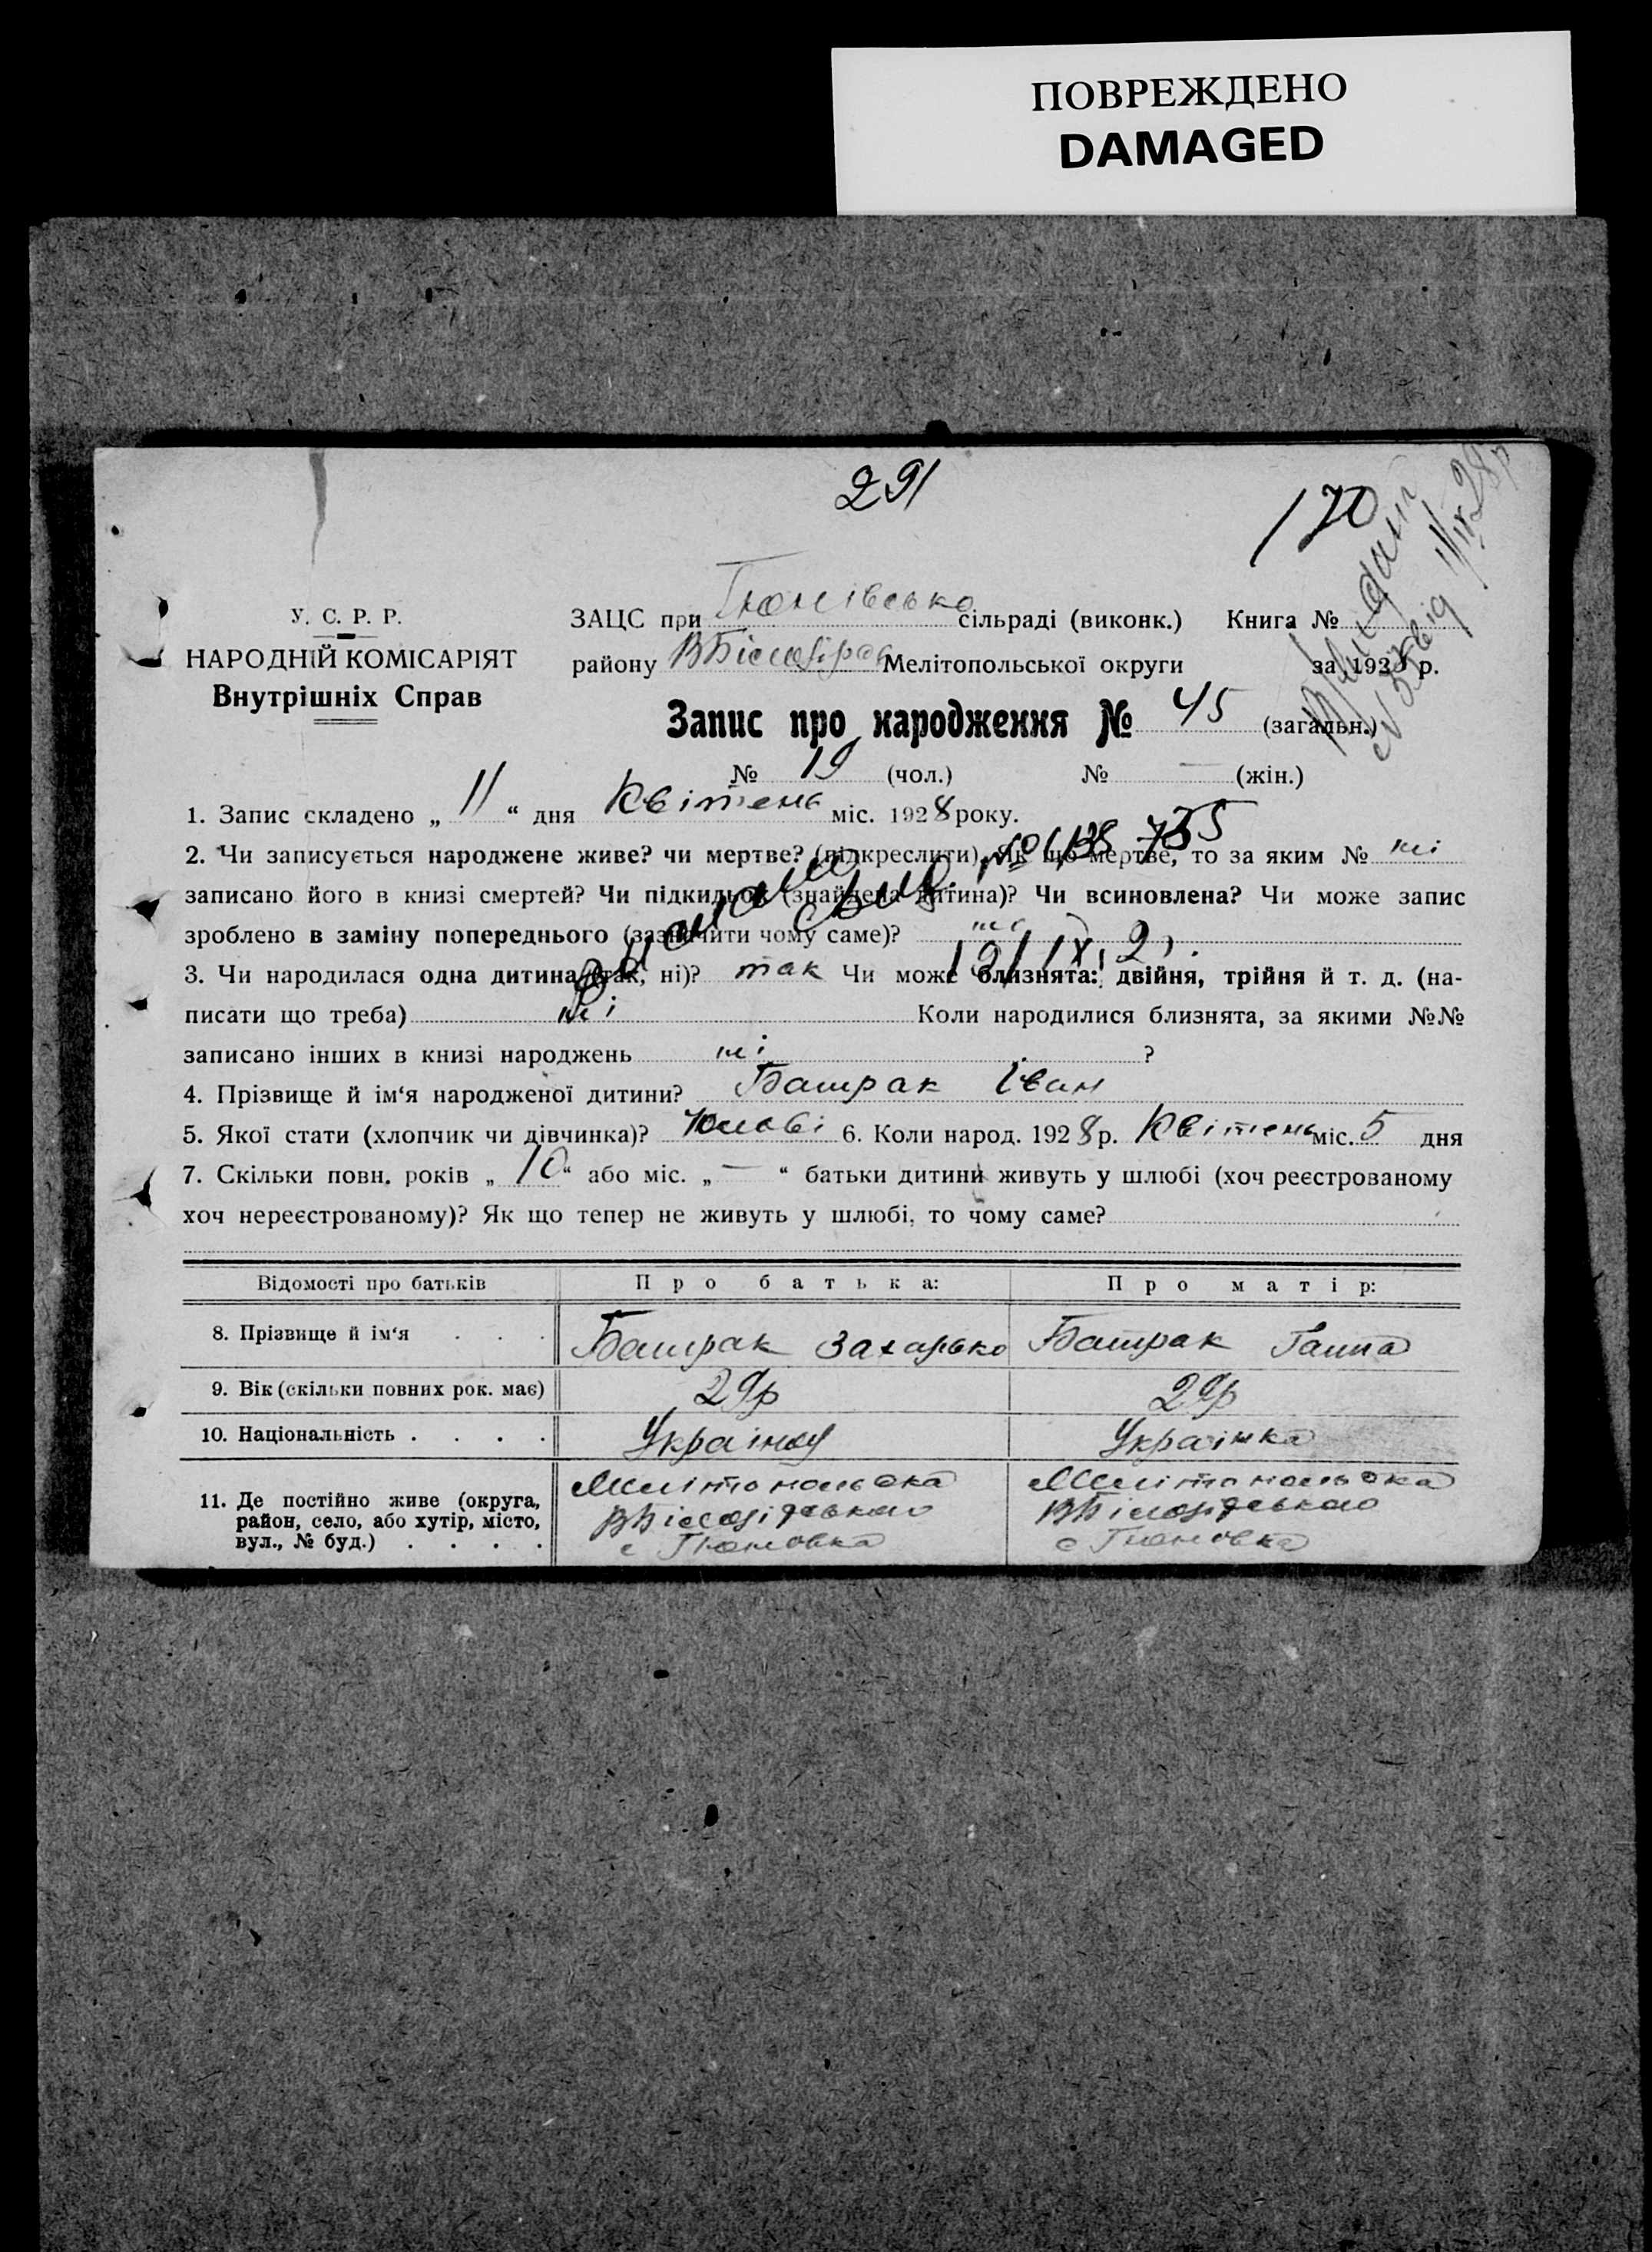 ПОВРЕЖДЕНО
DAMAGED
291
170
У. С. Р. Р.
НАРОДНІЙ КОМІСАРІЯТ
Внутрішніх Справ
ЗАЦС при сільраді (виконк.) Книга №
району Мелітопольської округи за 1928 р.
Запис про народження № 45 (загальн.)
№ 19 (чол.) № — (жін.)
1. Запис складено „ 11 “ дня Квітень міс. 1928 року.
2. Чи записується народжене живе? чи мертве? (підкреслити). Як що мертве, то за яким № ні
записано його в книзі смертей? Чи підкидьок (знайдена дитина)? Чи всиновлена? Чи може запис
зроблено в заміну попереднього (зазначити чому саме)? ні
3. Чи народилася одна дитина (так, ні)? так Чи може близнята: двійня, трійня й т. д. (на-
писати що треба) ні Коли народилися близнята, за якими №№
записано інших в книзі народжень ні ?
4. Прізвище й ім‘я народженої дитини? Батрак Іван
5. Якої стати (хлопчик чи дівчинка)? 6. Коли народ. 1928 р. Квітень міс. 5 дня
7. Скільки повн. років „ 10 “ або міс. „ — “ батьки дитини живуть у шлюбі (хоч реєстрованому
хоч нереєстрованому)? Як що тепер не живуть у шлюбі, то чому саме?
Відомості про батьків Про батька: Про матір:
8. Прізвище й ім‘я . . . Батрак Захарько Батрак Ганна
9. Вік (скільки повних рок. має) 29р 29р
10. Національність . . . . Українец Українка
11. Де постійно живе (округа, Мелітопольська Мелітопольська
район, село, або хутір, місто,
вул., № буд.) . . . .